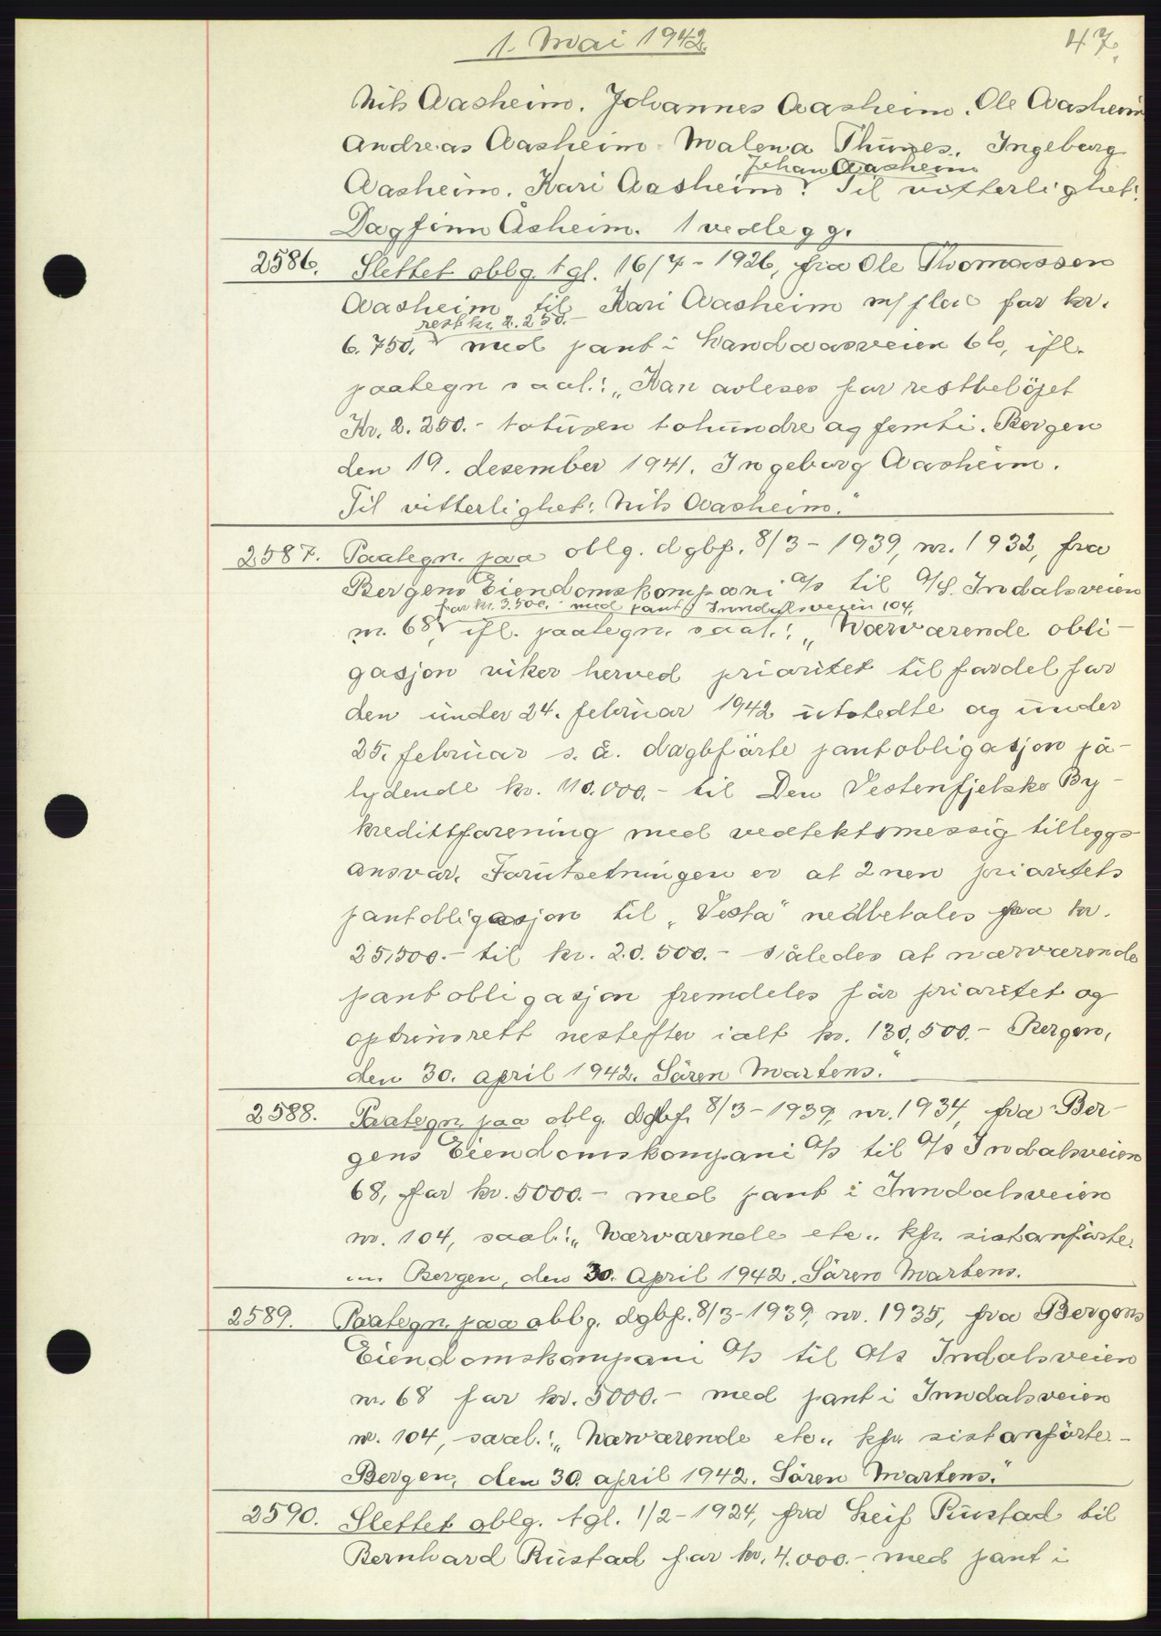 1. Mai 1942.
47.
Nils Aasheim. Johannes Aasheim. Ole Aasheim
Andreas Aasheim. Malena Thunes. Ingeborg
Johan Aasheim
Aasheim. Kari Aasheim. Til vitterlighet:
Dagfinn Åsheim. 1 vedlegg.
2586. Slettet oblg. tgl. 16/7-1926, fra Ole Thomassen
Aasheim til Kari Aasheim m/flere for kr.
rest kr. 2.250.-
6.750. med pant i 66, ifl.
paategn saal.: „Kan avleses for restbelöpet
Kr. 2.250.- totusen tohundre og femti. Bergen
den 19. desember 1941. Ingeborg Aasheim.
Til vitterlighet: Nils Aasheim."
2587. Paategn. paa oblg. dgbf. 8/3-1939, nr. 1932, fra
Bergens Eiendomskompani A/S til A/S. Indalsveien
for kr. 3.500.- med pant i Inndalsveien 104,
nr. 68, ifl. paategn. saal.: „Nærværende obli-
gasjon viker herved prioritet til fordel for
den under 24. februar 1942 utstedte og under
25. februar s. å. dagbförte pantobligasjon på-
lydende kr. 110.000.- til Den Vestenfjelske By-
kredittforening med vedtektsmessig tilleggs-
ansvar. Forutsetningen er at 2nen prioritets
pantobligasjon til „Vesta" nedbetales fra kr.
25,500.- til kr. 20.500.- således at nærværende
pantobligasjon fremdeles får prioritet og
optrinsrett nestefter ialt kr. 130,500.- Bergen,
den 30. april 1942. Sören Martens."
2588. Paategn. paa oblg. dgbf. 8/3-1939, nr. 1934, fra Ber-
gens Eiendomskompani A/S til A/S Indalsveien
68, for kr. 5000.- med pant i Inndalsveien
nr. 104, saal.: „Nærværende etc.. kfr. sistanförte.
Bergen, den 30. april 1942. Sören Martens.
2589. Paategn. paa oblg. dgbf. 8/3-1939, nr. 1935, fra Bergens
Eiendomskompani A/S til A/S Indalsveien
nr. 68 for kr. 5000.- med pant i Inndalsveien
nr. 104, saal.: „Nærværende etc.. kfr. sistanförte.-
Bergen, den 30. april 1942. Sören Martens."
2590. Slettet oblg. tgl. 1/2-1924, fra Leif Rustad til
Bernhard Rustad for kr. 4.000.- med pant i